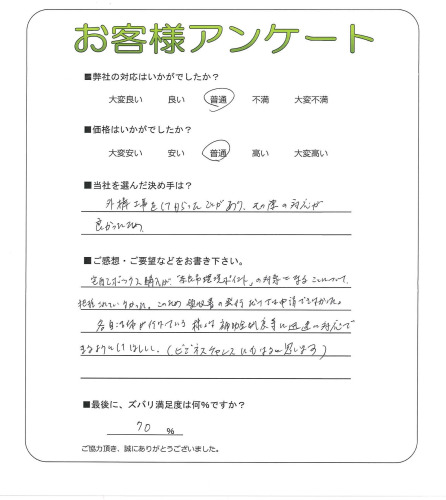 お客様アンケート
■弊社の対応はいかがでしたか？
大変良い 良い 普通 不満 大変不満
■価格はいかがでしたか？
大変安い 安い 普通 高い 大変高い
■当社を選んだ決め手は？
外構工事をしてもらったことがあり、その際の対応が
良かったため
■ご感想・ご要望などをお書き下さい。
宅配ボックス購入が、「奈良市環境ポイント」の対象になることについて、
把握されていなかった。このため領収書の発行だけでは申請できなかった。
各自治体が行っている様々な補助金制度等に迅速に対応で
きるようにしてほしい。（ビジネスチャンスにもなると思います）
■最後に、ズバリ満足度は何％ですか？
70 ％
ご協力頂き、誠にありがとうございました。